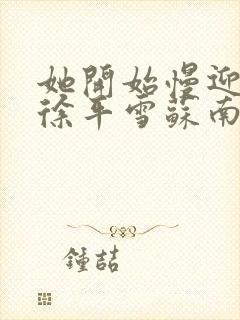 她開始慢迎
徐平雪蘇南
鍾喆